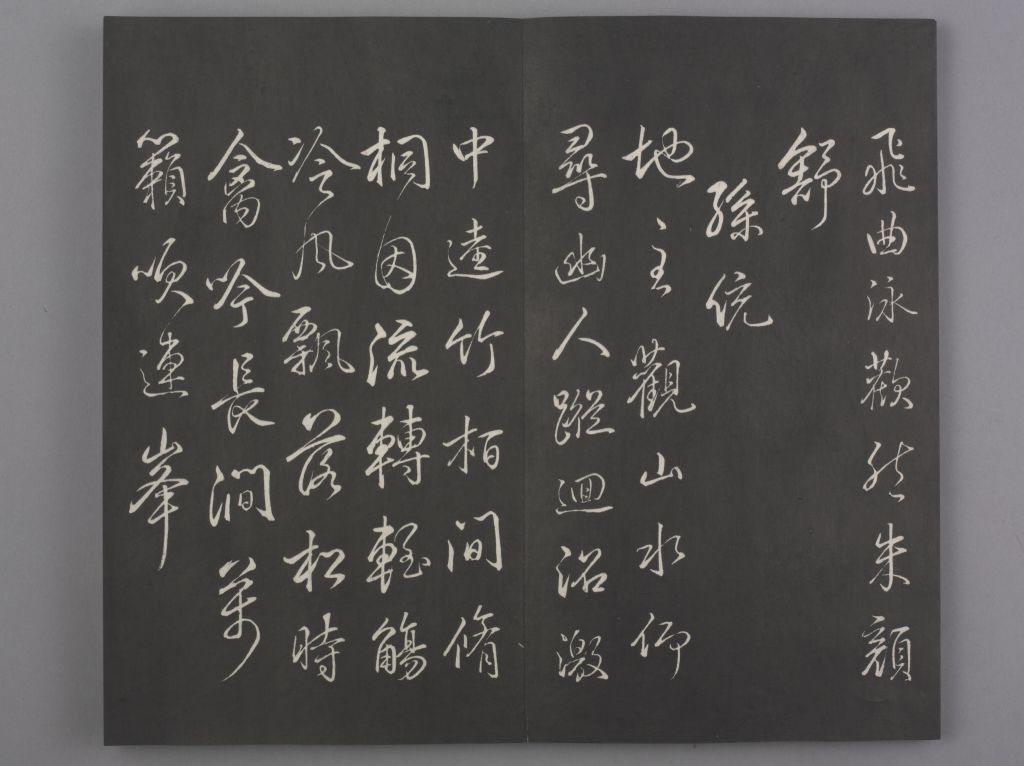 飛曲泳歡然朱顔
舒
孫統
地主觀山水仰
尋幽人蹤迴沼激
中逵竹柏間脩
桐因流轉輕觴
冷風飄落松時
禽吟長澗萬
籟吹連峯